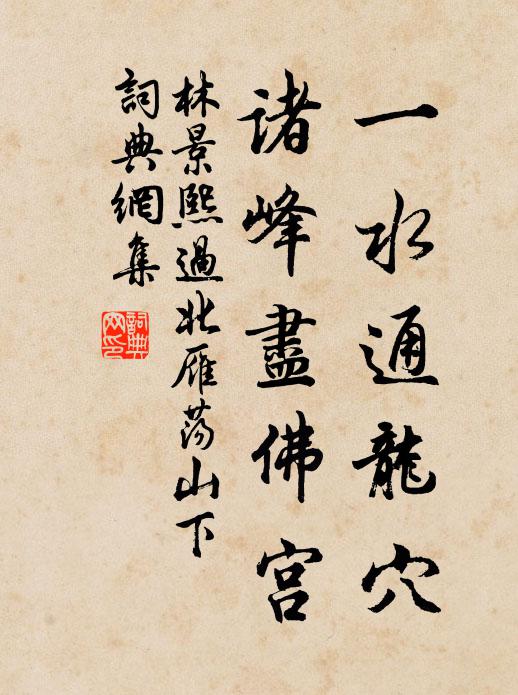 一水通龍穴
諸峰盡佛宮
林景熙過北雁蕩山下
詞典網集
詞典網印